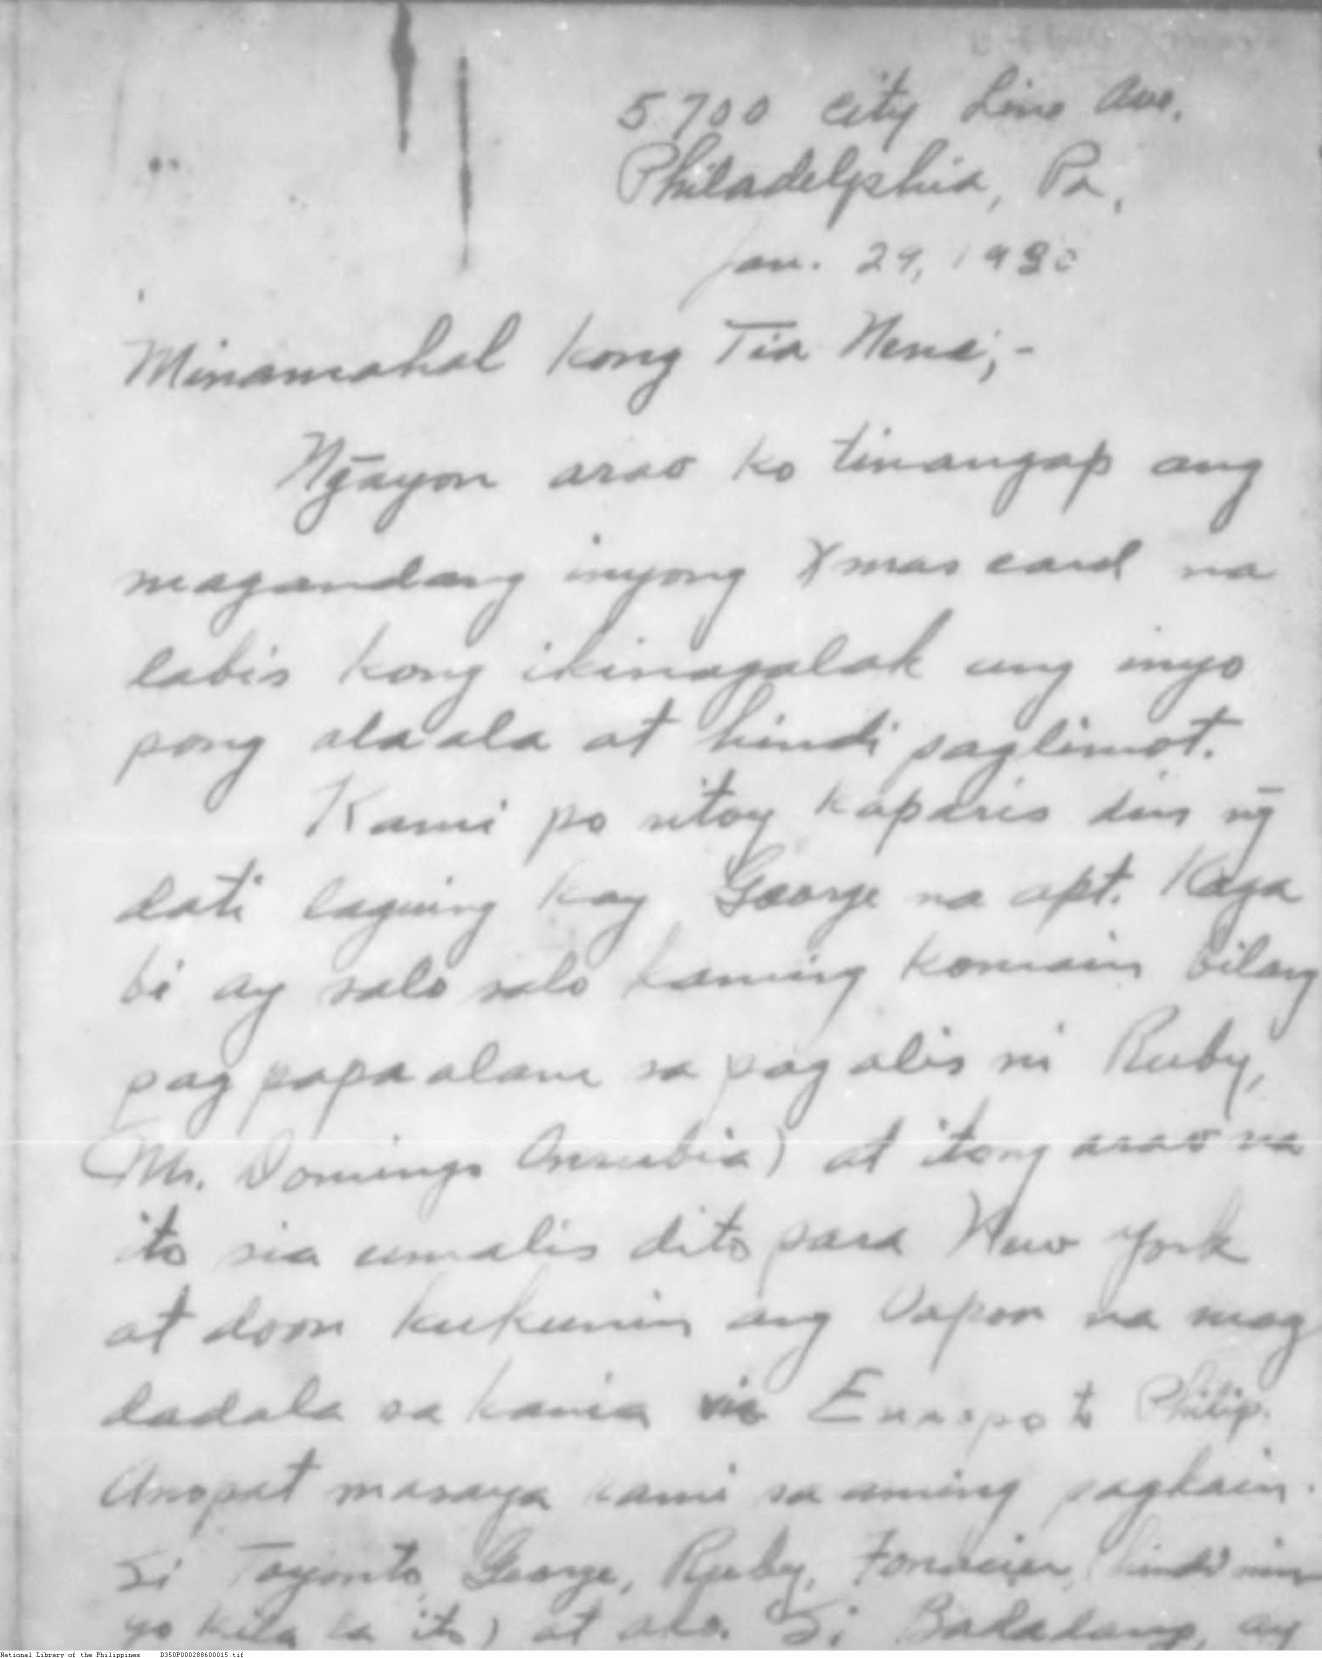 5700 City Line Ave.
Philadelphia, Pa.
Jan. 29, 1930
Minamahal kong Tia Nena;-
Ng̃ayon arao ko tinangap ang
magandang inyong Xmas card na
labis kong ikinagalak ang inyo
pong ala ala at hindi paglimot.
Kami po nitoy kaparis din ng̃
dati laguing kay George na apt. Kaga
bi ay salo salo kaming komain bilang
pag papaalam sa pag alis ni Ruby,
(Mr. Domingo) at itong arao na
ito sia umalis dito para New York
at doon kukunin ang vapor na mag
dadala sa kania via Europe to Philip.
Anopat masaya kami sa aming pagkain.
Si Tayonto, George, Ruby, Fonacier, (hindi nin
yo kila la ito) at ako. Si Badadang, ay
National Library of the Philippines D350P000288600015.tif